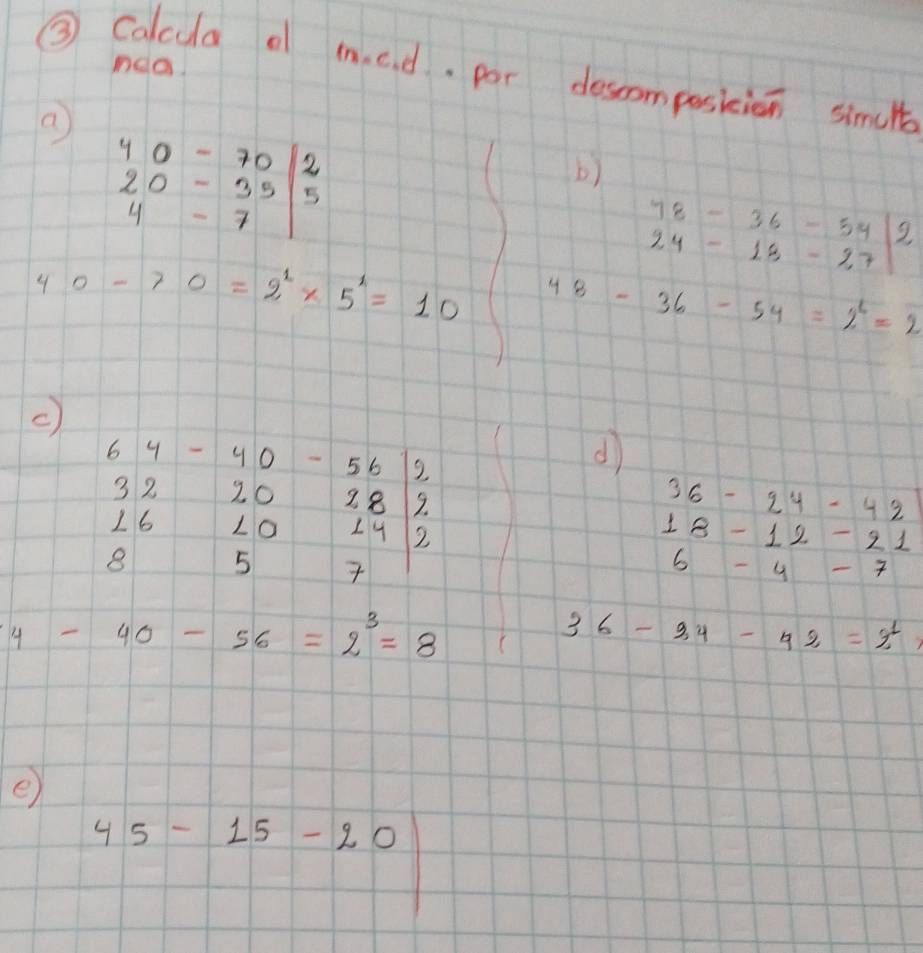 ③ Calcula el m.c.d. por descomposición simultá
nea.
a)
40 - 70 | 2
20 - 35 | 5
4 - 7
40 - 70 = 2¹ × 5¹ = 10
b)
48 - 36 - 54 | 2
24 - 18 - 27
48 - 36 - 54 = 2¹ = 2
c)
64 - 40 - 56 | 2
32 20 28 | 2
16 10 14 | 2
8 5 7
4 - 40 - 56 = 2³ = 8
d)
36 - 24 - 42
18 - 12 - 21
6 - 4 - 7
36 - 24 - 42 = 2¹
e)
45 - 15 - 20